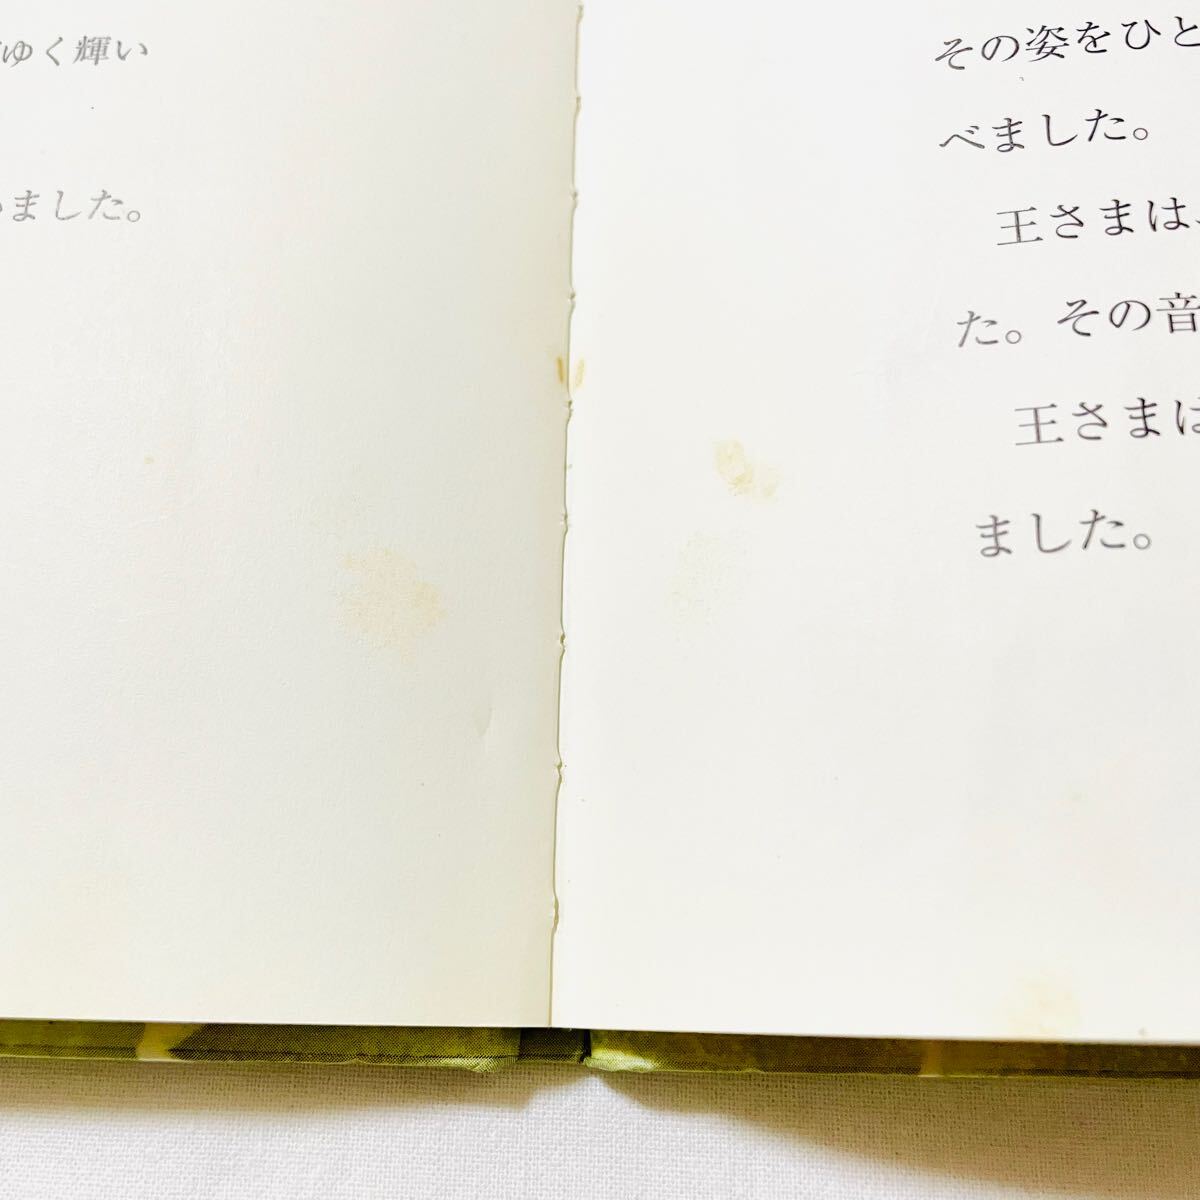 ゆく輝い
ました。
その姿をひと
べました。
王さまは、
た。その音
王さまは
ました。